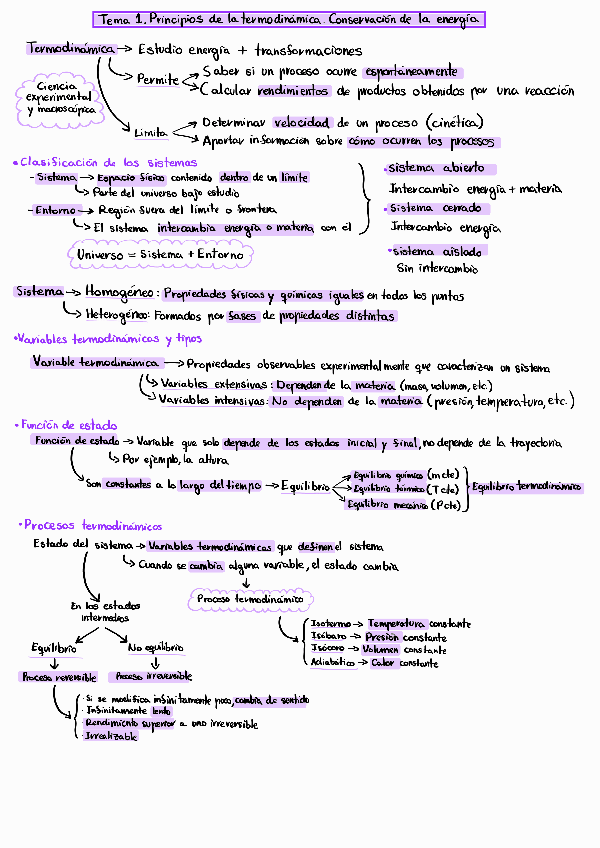 Tema 1. Principios de la termodinámica. Conservación de la energía
Termodinámica → Estudio energía + transformaciones
Ciencia
experimental
y macroscópica
Permite → Saber si un proceso ocurre espontáneamente
→ Calcular rendimientos de productos obtenidos por una reacción
Limita → Determinar velocidad de un proceso (cinética)
→ Aportar información sobre cómo ocurren los procesos
• Clasificación de los sistemas
- Sistema → Espacio físico contenido dentro de un límite
↳ Parte del universo bajo estudio
- Entorno → Región fuera del límite o frontera
↳ El sistema intercambia energía o materia con él
Universo = Sistema + Entorno
• Sistema abierto
Intercambio energía + materia
• Sistema cerrado
Intercambio energía
• Sistema aislado
Sin intercambio
Sistema → Homogéneo: Propiedades físicas y químicas iguales en todos los puntos
↳ Heterogéneo: Formados por fases de propiedades distintas
• Variables termodinámicas y tipos
Variable termodinámica → Propiedades observables experimentalmente que caracterizan un sistema
↳ Variables extensivas: Dependen de la materia (masa, volumen, etc.)
↳ Variables intensivas: No dependen de la materia (presión, temperatura, etc.)
• Función de estado
Función de estado → Variable que solo depende de los estados inicial y final, no depende de la trayectoria
↳ Por ejemplo, la altura
↳ Son constantes a lo largo del tiempo → Equilibrio
Equilibrio químico (mcte)
Equilibrio térmico (Tcte)
Equilibrio mecánico (Pcte)
Equilibrio termodinámico
• Procesos termodinámicos
Estado del sistema → Variables termodinámicas que definen el sistema
↳ Cuando se cambia alguna variable, el estado cambia
Proceso termodinámico
Isotermo → Temperatura constante
Isóbaro → Presión constante
Isócoro → Volumen constante
Adiabático → Calor constante
En los estados
intermedios
Equilibrio
No equilibrio
Proceso reversible
Proceso irreversible
· Si se modifica infinitamente poco, cambia de sentido
· Infinitamente lento
· Rendimiento superior a uno irreversible
· Irrealizable